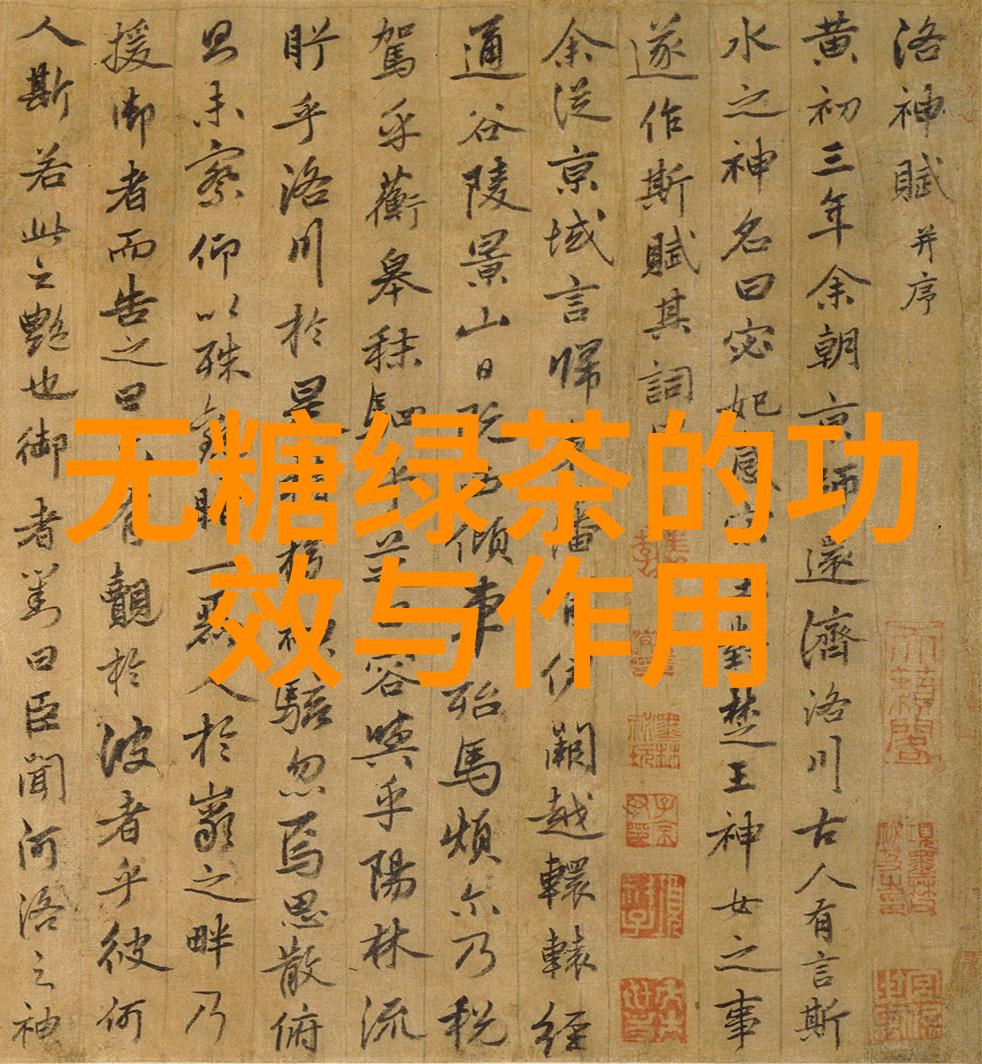 洛神賦并序
黄初三年余朝京師還濟洛川古人有言斯
水之神名曰宓妃感對楚王神女之事
遂作斯賦其詞
余從京域言歸伊闕越轘轅經
通谷陵景山日既西傾車殆馬煩尓乃税
駕乎蘅皋秣駟乎容與乎陽林流
眄乎洛川於是駭忽焉思散俯
未察仰以殊一麗人於巖之畔乃
援御者而告之曰有覿於彼者乎彼何
人斯若此之艷也御者對曰臣聞河洛之神
无糖绿茶的功
效与作用